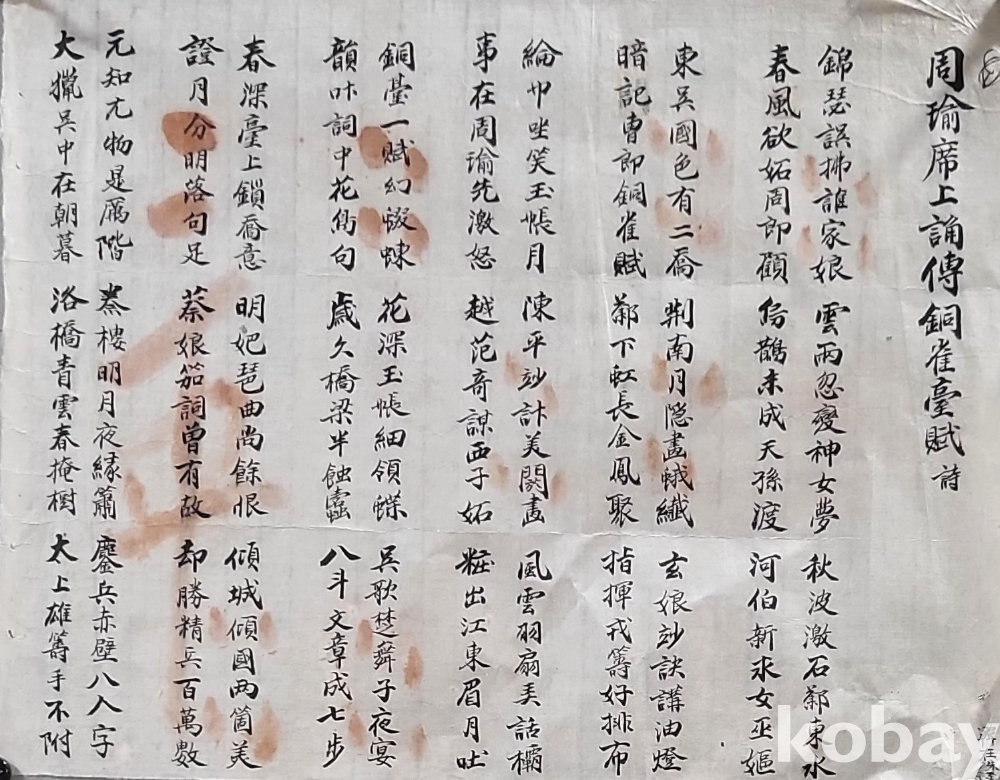 周瑜席上誦傳銅雀臺賦 詩
錦瑟誤拂誰家娘
春風欲妬周郎顧
雲雨忍變神女夢
烏鵲未成天孫渡
秋波激石鄴東水
河伯新求女巫嫗
東吳國色有二喬
暗記曹郎銅雀賦
荆南月隱畵蛾纖
鄴下虹長金鳳聚
玄娘妙訣講油燈
指揮戎籌好排布
綸巾坐笑玉帳月
事在周瑜先激怒
陳平妙計美閼畵
越范奇謀西子妬
風雲羽扇弄話欛
粧出江東眉月吐
銅臺一賦幻蝃蝀
韻叶詞中花鳥句
花深玉帳細領蝶
歲久橋梁半蝕蠹
吳歌楚舞子夜宴
八斗文章成七步
春深臺上鎖喬意
證月分明落句足
明妃琶曲尙餘恨
蔡娘笳詞曾有故
傾城傾國兩箇美
却勝精兵百萬數
元知尤物是厲階
大獵吳中在朝暮
秦樓明月夜緣簫
洛橋青雲春掩樹
鏖兵赤壁八八字
太上雄籌手不附
kobay